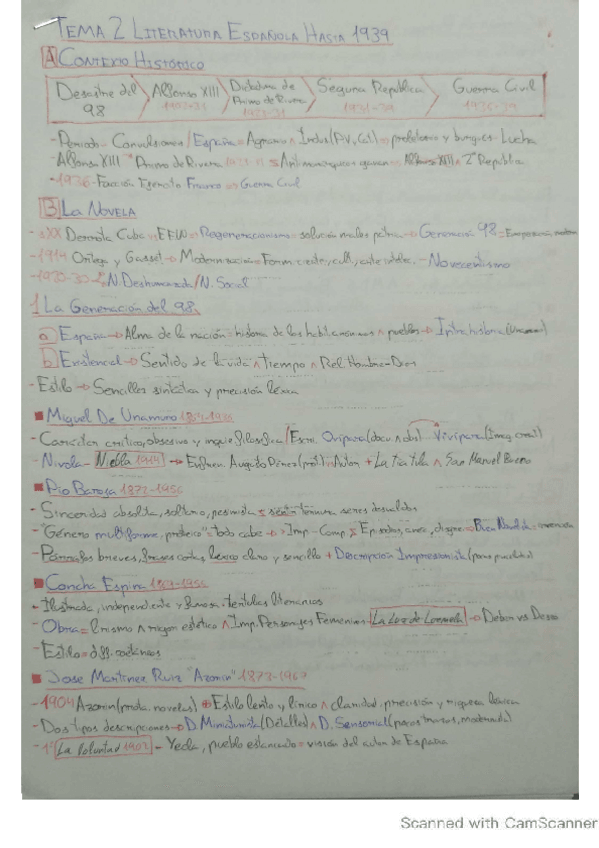 TEMA 2 LITERATURA ESPAÑOLA HASTA 1939
A CONTEXTO HISTÓRICO
Desastre del 98
Alfonso XIII 1902-31
Dictadura de Primo de Rivera 1923-31
Segunda República 1931-39
Guerra Civil 1936-39
- Periodo - Convulsiones / España = Agrario ∧ Indus (PV, Cat) proletarios y burgues - Lucha
- Alfonso XIII Primo de Rivera Antimonarquicos ganan Alfonso XIII ∧ 2ª República
- 1936 - Facción Ejercito Franco => Guerra Civil
B LA NOVELA
- Derrota Cuba EEUU Regeneracionismo = solución males patria -> Generación 98
- 1914 Ortega y Gasset -> Modernización - Novecentismo
- 1920-30 N. Deshumanizada / N. Social
1 LA GENERACIÓN DEL 98.
a España -> Alma de la nación = historia de los ∧ pueblos -> Intrahistoria (Unamuno)
b Existencial -> Sentido de la vida ∧ Tiempo ∧ Rel. Hombre-Dios
- Estilo -> Sencillez sintáctica y precisión léxica
MIGUEL DE UNAMUNO
- Carácter crítico, obsesivo y inquie. filosófica / Escri. Ovípara (docu ∧ obs) Vivípara (Imag, creat)
- Nivola - Niebla 1914 -> Enfren. Augusto Pérez (prot) Autor + La tía tula ∧ San Manuel Bueno
PÍO BAROJA 1872-1956
- Sinceridad absoluta, solitario, pesimista ternura seres desvalidos
- "Género multiforme, proteico" = todo cabe -> Imp-Comp
- Párrafos breves, frases cortas léxico claro y sencillo + Descripción Impresionista
CONCHA ESPINA
- Ilustrada, independiente y famosa - tertulias literarias
- Obra = lirismo ∧ rigor estético ∧ Imp. Personajes Femeninos La Luz de Luzmela -> Deber vs Deseo
- Estilo = diff. coetáneos
JOSE MARTINEZ RUIZ "AZORIN" 1873-1967
- 1904 Azorin (prota. novelas) Estilo lento y lírico ∧ claridad, precisión y riqueza léxica
- Dos tipos descripciones -> D. Miniaturista (Detalles) ∧ D. Sensorial (pocos trazos, modernista)
- 1ª La Voluntad 1902 - Yecla, pueblo estancado = visión del autor de España
Scanned with CamScanner